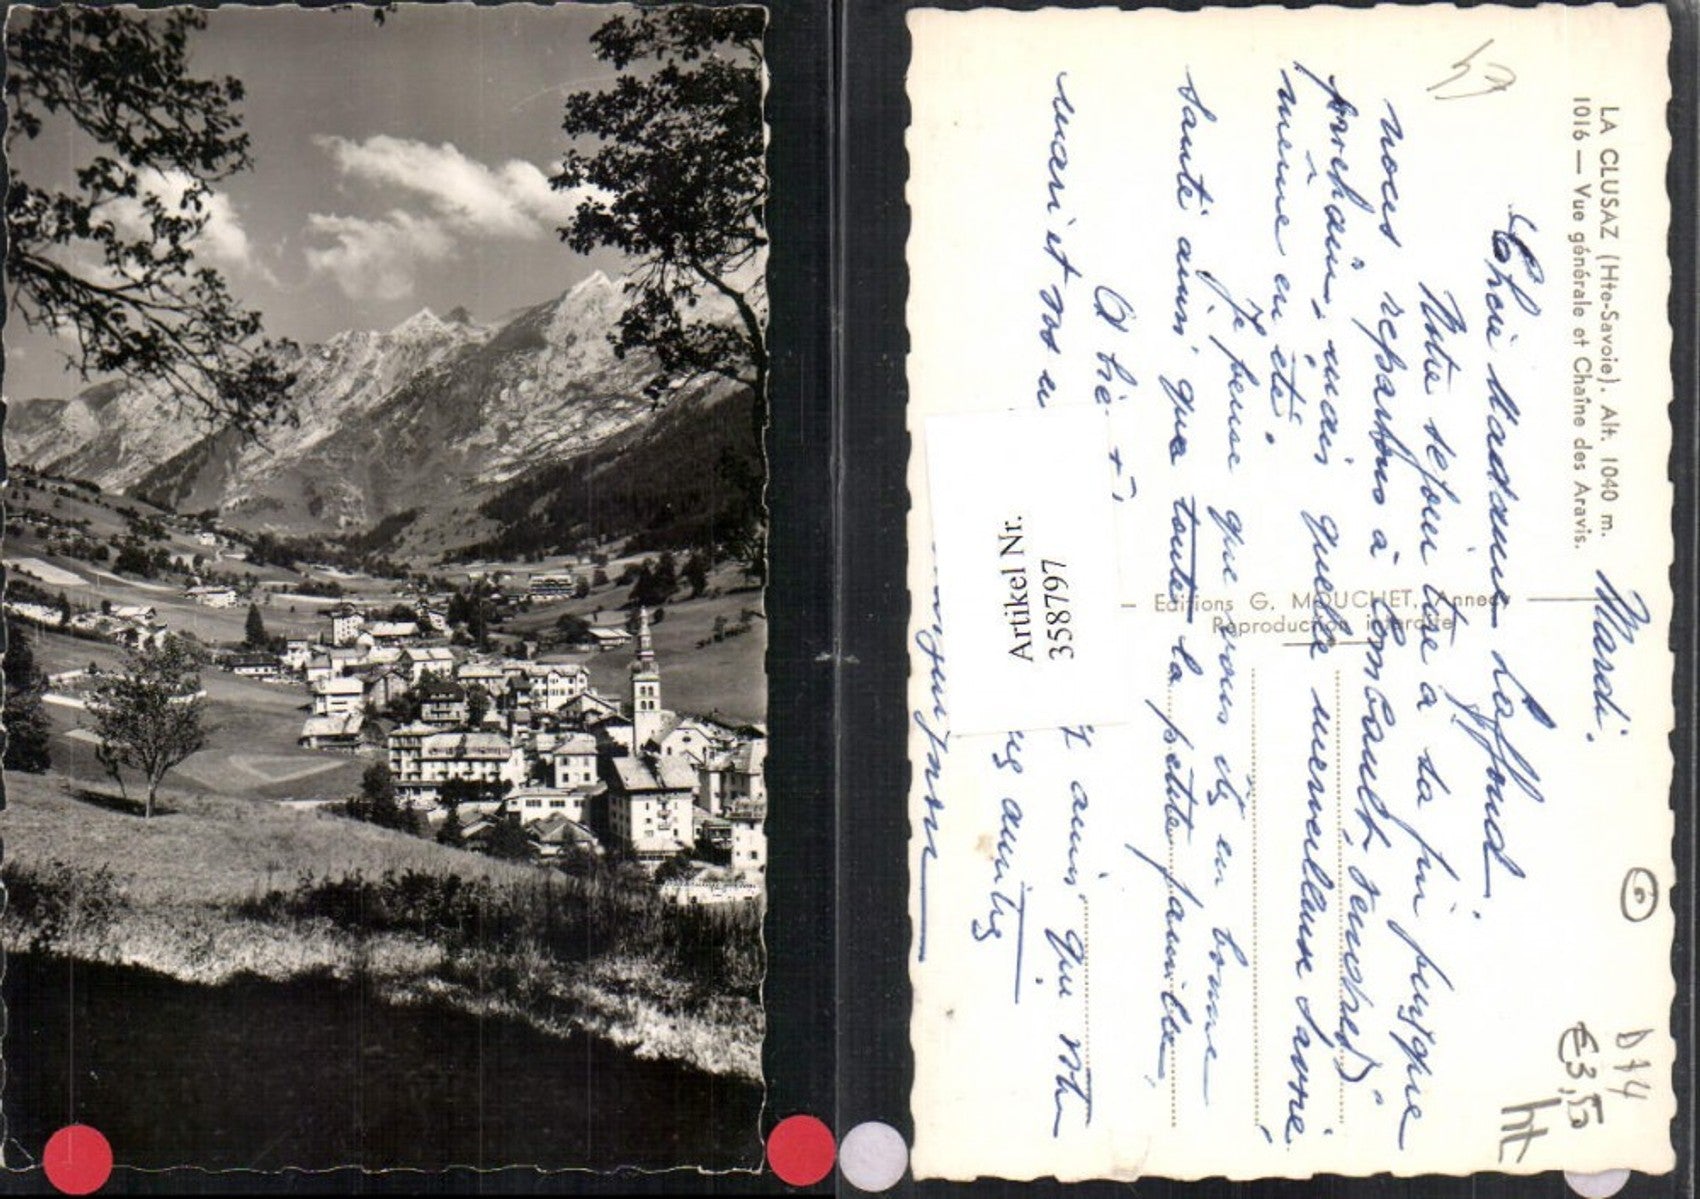 LA CLUSAZ (Hte-Savoie). Alt. 1040 m.
1016 — Vue générale et Chaîne des Aravis.
Mardi.
Chère Madame Laffond.
Notre séjour tire à sa fin puisque
nous repartons à Combault, vendredi
prochain, mais quelle merveilleuse soirée
même en été.
Je pense que vous êtes en bonne
santé ainsi que toute la petite famille.
A bientôt
amis, qui
mari et vos
amitiés
Editions G. MOUCHET, Annecy
Reproduction interdite
Artikel Nr.
358797
6
D74
€3,50
ht